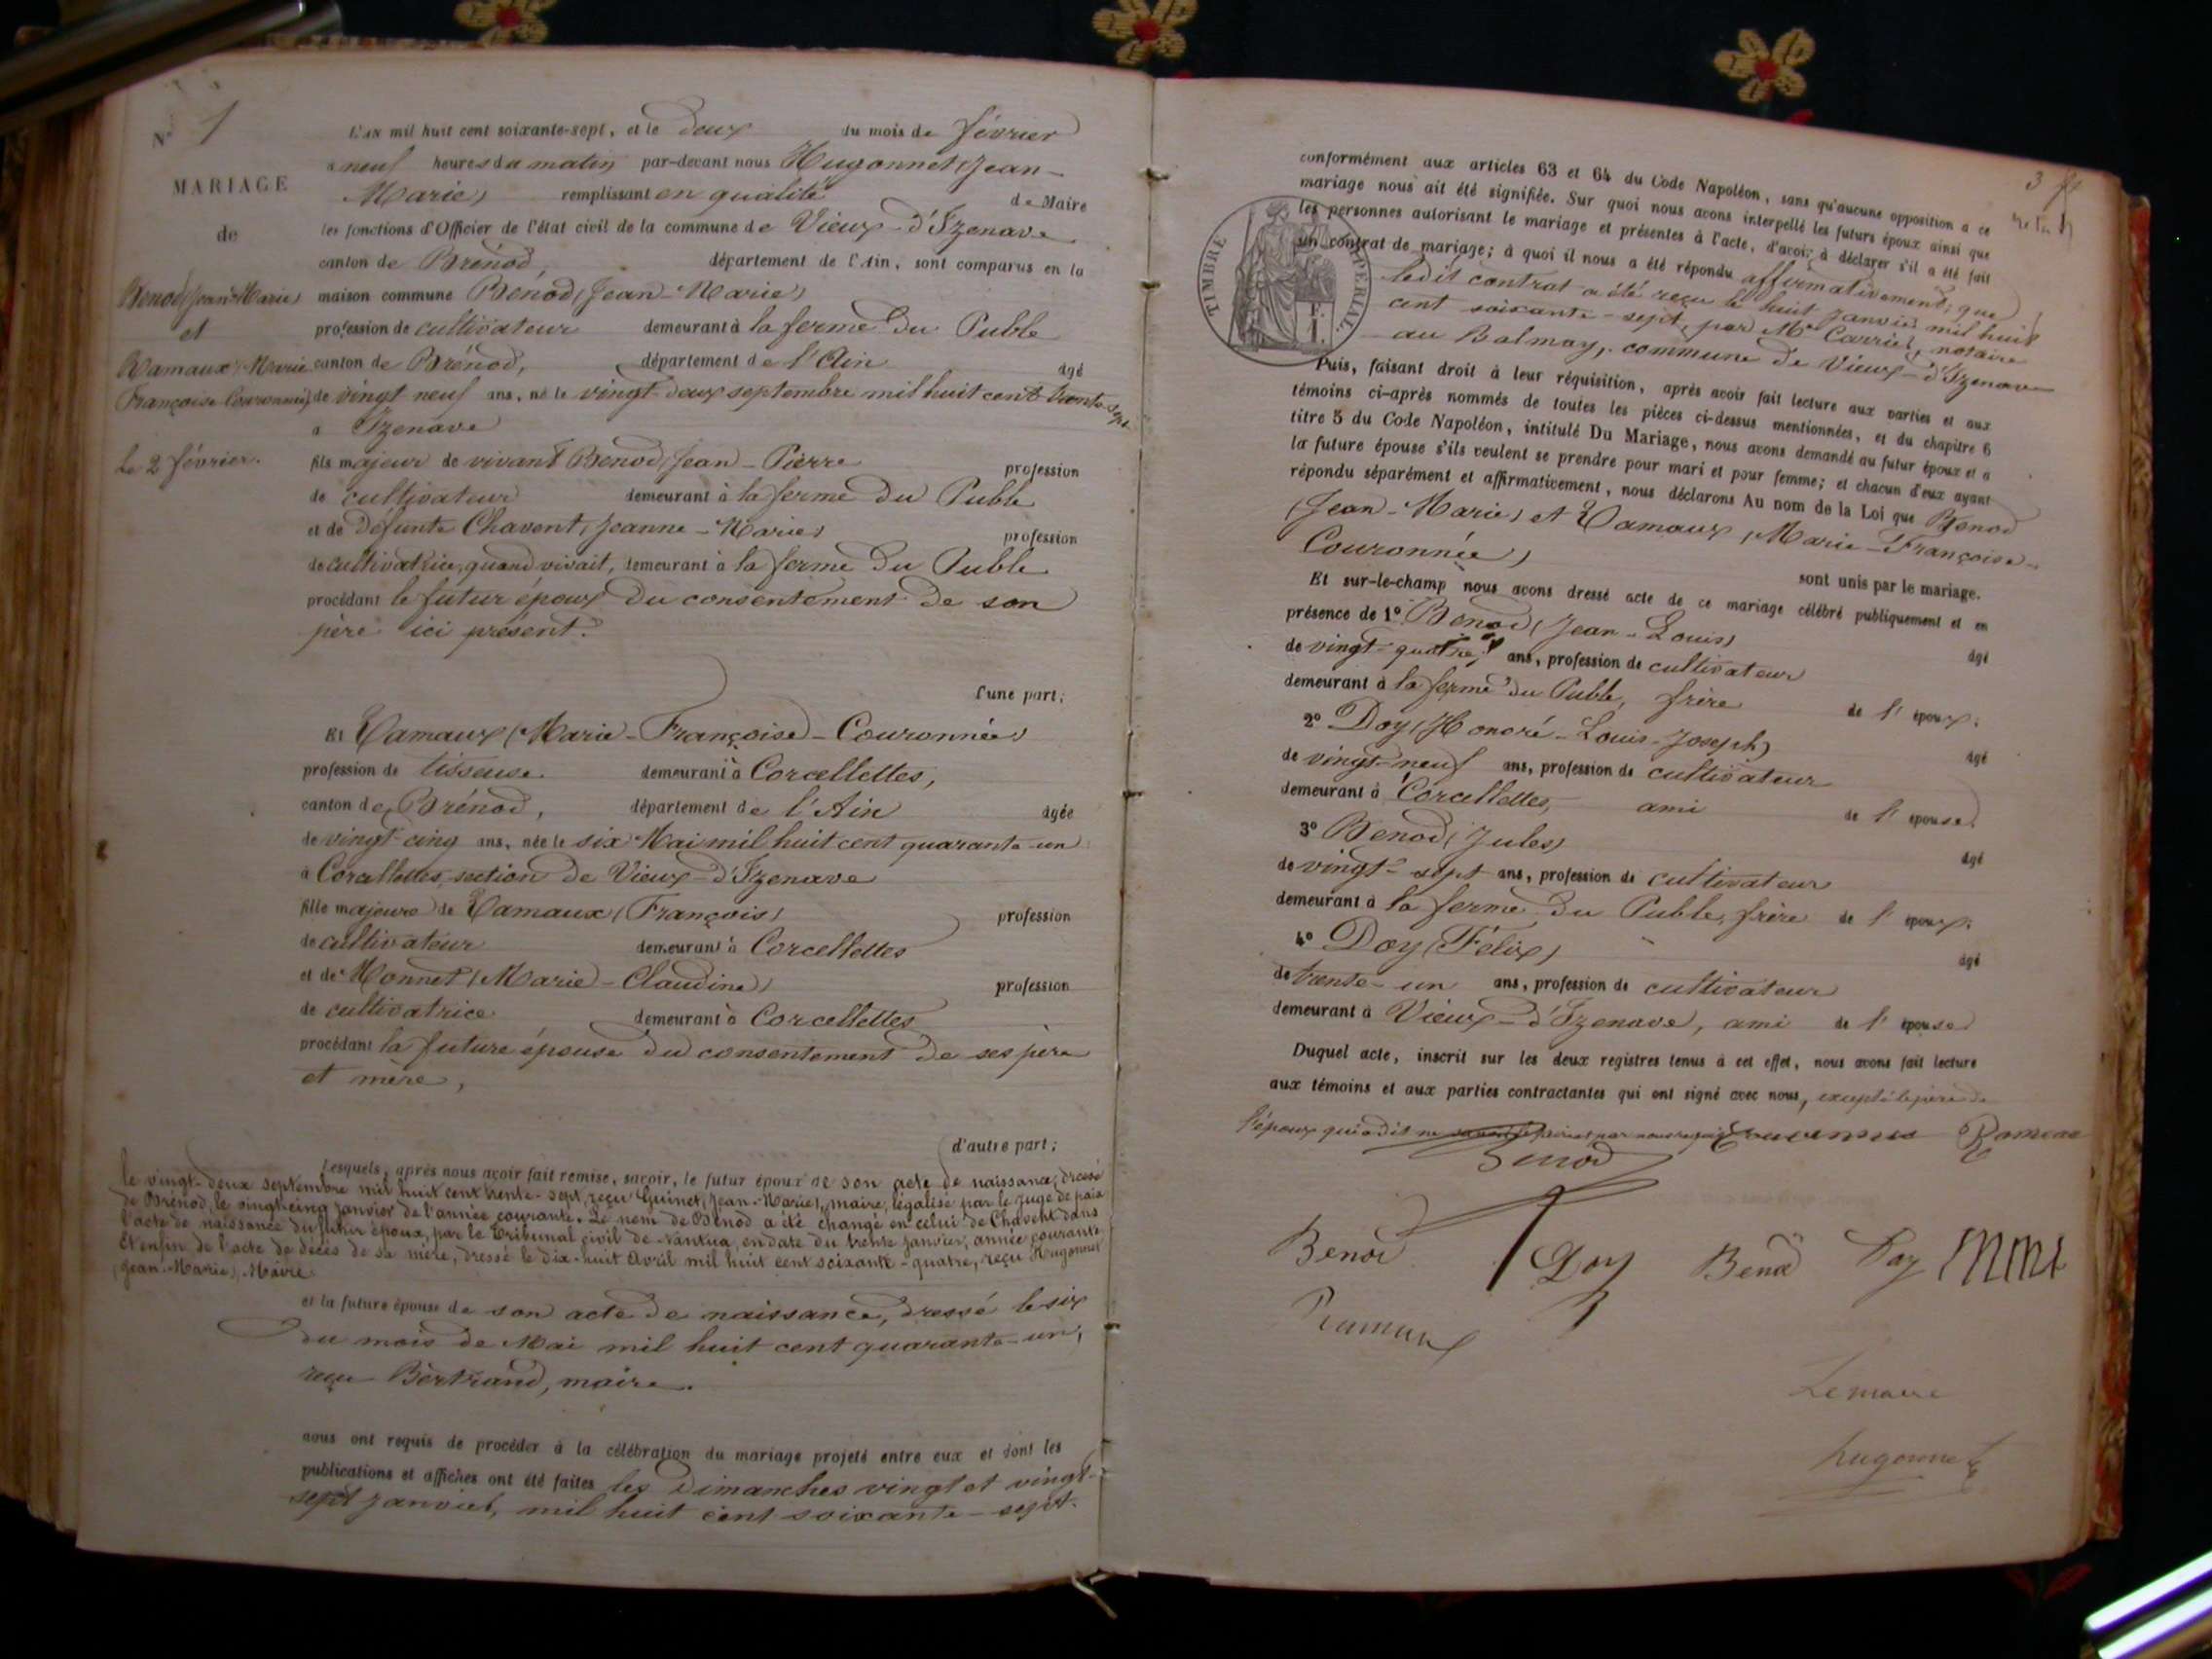 N° 1
MARIAGE
de
Benod (Jean-Marie)
et
Ramaux (Marie
Françoise Couronnée)
Le 2 février.
L'AN mil huit cent soixante-sept, et le deux du mois de février
à neuf heures du matin par-devant nous Hugonnet (Jean-
Marie) remplissant en qualité de Maire
les fonctions d'Officier de l'état civil de la commune de Vieux-d'Izenave
canton de Brénod, département de l'Ain, sont comparus en la
maison commune Benod (Jean-Marie)
profession de cultivateur demeurant à la ferme du Publé
canton de Brénod, département de l'Ain âgé
de vingt neuf ans, né le vingt-deux septembre mil huit cent trente-sept
à Izenave
fils majeur de vivant Benod (Jean-Pierre profession
de cultivateur demeurant à la ferme du Publé
et de défunte Chavent (Jeanne-Marie) profession
de cultivatrice, quand vivait, demeurant à la ferme du Publé
procédant le futur époux du consentement de son
père ici présent.
d'une part;
Et Ramaux (Marie-Françoise-Couronnée)
profession de tisseuse. demeurant à Corcellettes,
canton de Brénod, département de l'Ain âgée
de vingt-cinq ans, née le six Mai mil huit cent quarante-un
à Corcellettes, section de Vieux-d'Izenave
fille majeure de Ramaux (François) profession
de cultivateur demeurant à Corcellettes
et de Monnet (Marie-Claudine) profession
de cultivatrice demeurant à Corcellettes
procédant la future épouse du consentement de ses père
et mère,
d'autre part;
Lesquels, après nous avoir fait remise, savoir, le futur époux de son acte de naissance, dressé
le vingt-deux septembre mil huit cent trente-sept, reçu Guinet (Jean-Marie), maire, légalisé par le Juge de paix
de Brénod, le vingt-cinq janvier de l'année courante. Le nom de Benod a été changé en celui de Chavent dans
l'acte de naissance du futur époux, par le Tribunal civil de Nantua, en date du trente janvier, année courante.
Et enfin de l'acte de décès de sa mère, dressé le dix-huit Avril mil huit cent soixante-quatre, reçu Hugonnet
(Jean-Marie), Maire.
et la future épouse de son acte de naissance, dressé le six
du mois de Mai mil huit cent quarante-un,
reçu Bertrand, maire.
nous ont requis de procéder à la célébration du mariage projeté entre eux et dont les
publications et affiches ont été faites les Dimanches vingt et vingt-
sept janvier, mil huit cent soixante-sept.
3
conformément aux articles 63 et 64 du Code Napoléon, sans qu'aucune opposition à ce
mariage nous ait été signifiée. Sur quoi nous avons interpellé les futurs époux ainsi que
les personnes autorisant le mariage et présentes à l'acte, d'avoir à déclarer s'il a été fait
un contrat de mariage; à quoi il nous a été répondu affirmativement; que
ledit contrat a été reçu le huit janvier mil huit
cent soixante-sept, par Me Carrier, notaire
au Balmay, commune de Vieux-d'Izenave
TIMBRE IMPÉRIAL.
Puis, faisant droit à leur réquisition, après avoir fait lecture aux parties et aux
témoins ci-après nommés de toutes les pièces ci-dessus mentionnées, et du chapitre 6
titre 5 du Code Napoléon, intitulé Du Mariage, nous avons demandé au futur époux et à
la future épouse s'ils veulent se prendre pour mari et pour femme; et chacun d'eux ayant
répondu séparément et affirmativement, nous déclarons Au nom de la Loi que Benod
(Jean-Marie) et Ramaux (Marie-Françoise-
Couronnée)
sont unis par le mariage.
Et sur-le-champ nous avons dressé acte de ce mariage célébré publiquement et en
présence de 1° Benod (Jean-Louis) âgé
de vingt-quatre ans, profession de cultivateur
demeurant à la ferme du Publé, frère de l'époux;
2° Doy (Honoré-Louis-Joseph) âgé
de vingt-neuf ans, profession de cultivateur
demeurant à Corcellettes, ami de l'épouse.
3° Benod (Jules) âgé
de vingt-sept ans, profession de cultivateur
demeurant à la ferme du Publé, frère de l'époux;
4° Doy (Félix) âgé
de trente-un ans, profession de cultivateur
demeurant à Vieux-d'Izenave, ami de l'épouse
Duquel acte, inscrit sur les deux registres tenus à cet effet, nous avons fait lecture
aux témoins et aux parties contractantes qui ont signé avec nous, excepté le père de
l'époux qui a dit ne
Benod
Benod Doy Benod Doy
Le maire
hugonnet